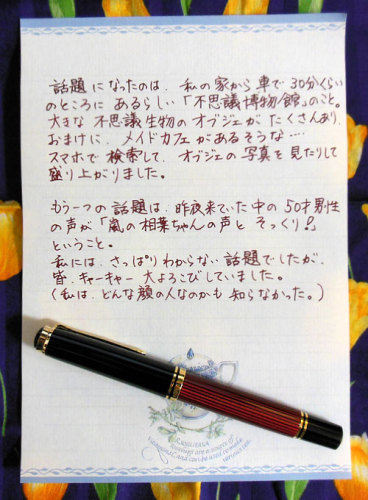 話題になったのは、私の家から車で30分くらい
のところにあるらしい「不思議博物館」のこと。
大きな不思議生物のオブジェがたくさんあり、
おまけに、メイドカフェがあるそうな…
スマホで検索して、オブジェの写真を見たりして
盛り上がりました。
もう一つの話題は、昨夜来ていた中の50才男性
の声が「嵐の相葉ちゃんの声とそっくり!」
ということ。
私には、さっぱりわからない話題でしたが、
皆、キャーキャー大よろこびしていました。
(私は、どんな顔の人なのかも知らなかった。)